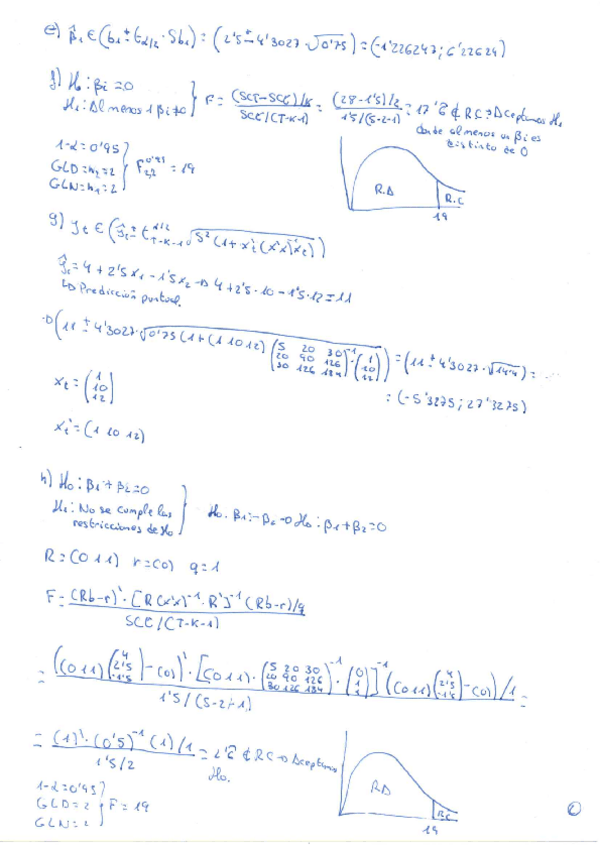 e) β̂₁ ∈ (b₁ ± t_{α/2} · Sb₁) = (2'5 ± 4'3027 · √0'75) = (-1'226247; 6'22624)
f) H₀: βi = 0
H₁: Al menos 1 βi ≠ 0
F = (SCT - SCE)/K / SCE/(T-K-1) = (28 - 1'5)/2 / 1'5/(5-2-1) = 17'6̂ ∉ RC → Aceptamos H₀
donde al menos un βi es
distinto de 0
1-α = 0'95
GLD = n₂ = 2
GLN = n₁ = 2
F_{2,2}^{0'95} = 19
R.A
R.C
19
g) y_t ∈ (ŷ_t ± t_{T-K-1}^{α/2} √S² (1 + x_t' (x'x)⁻¹ x_t))
ŷ_t = 4 + 2'5 x₁ - 1'5 x₂ → 4 + 2'5 · 10 - 1'5 · 12 = 11
↳ Predicción puntual.
→ (11 ± 4'3027 · √0'75 (1 + (1 10 12) (5 20 30
20 90 126
30 126 184)⁻¹ · (1
10
12))) = (11 ± 4'3027 · √14'4) = ...
= (-5'3275; 27'3275)
x_t = (1
10
12)
x_t' = (1 10 12)
h) H₀: β₁ + β₂ = 0
H₁: No se cumple las
restricciones de H₀
H₀: β₁ = -β₂ → H₀: β₁ + β₂ = 0
R = (0 1 1) r = (0) q = 1
F = (Rb - r)' · [R (x'x)⁻¹ · R']⁻¹ (Rb - r)/q
SCE/(T-K-1)
= ((0 1 1) (4
2'5
-1'5) - (0))' · [(0 1 1) · (5 20 30
20 90 126
30 126 184)⁻¹ · (0
1
1)]⁻¹ ((0 1 1) (4
2'5
-1'5) - (0))/1 =
1'5/(5-2-1)
= (1)' · (0'5)⁻¹ (1)/1 = 2'6̂ ∉ RC → Aceptamos
1'5/2
H₀.
1-α = 0'95
GLD = 2
GLN = 2
F = 19
RA
RC
19